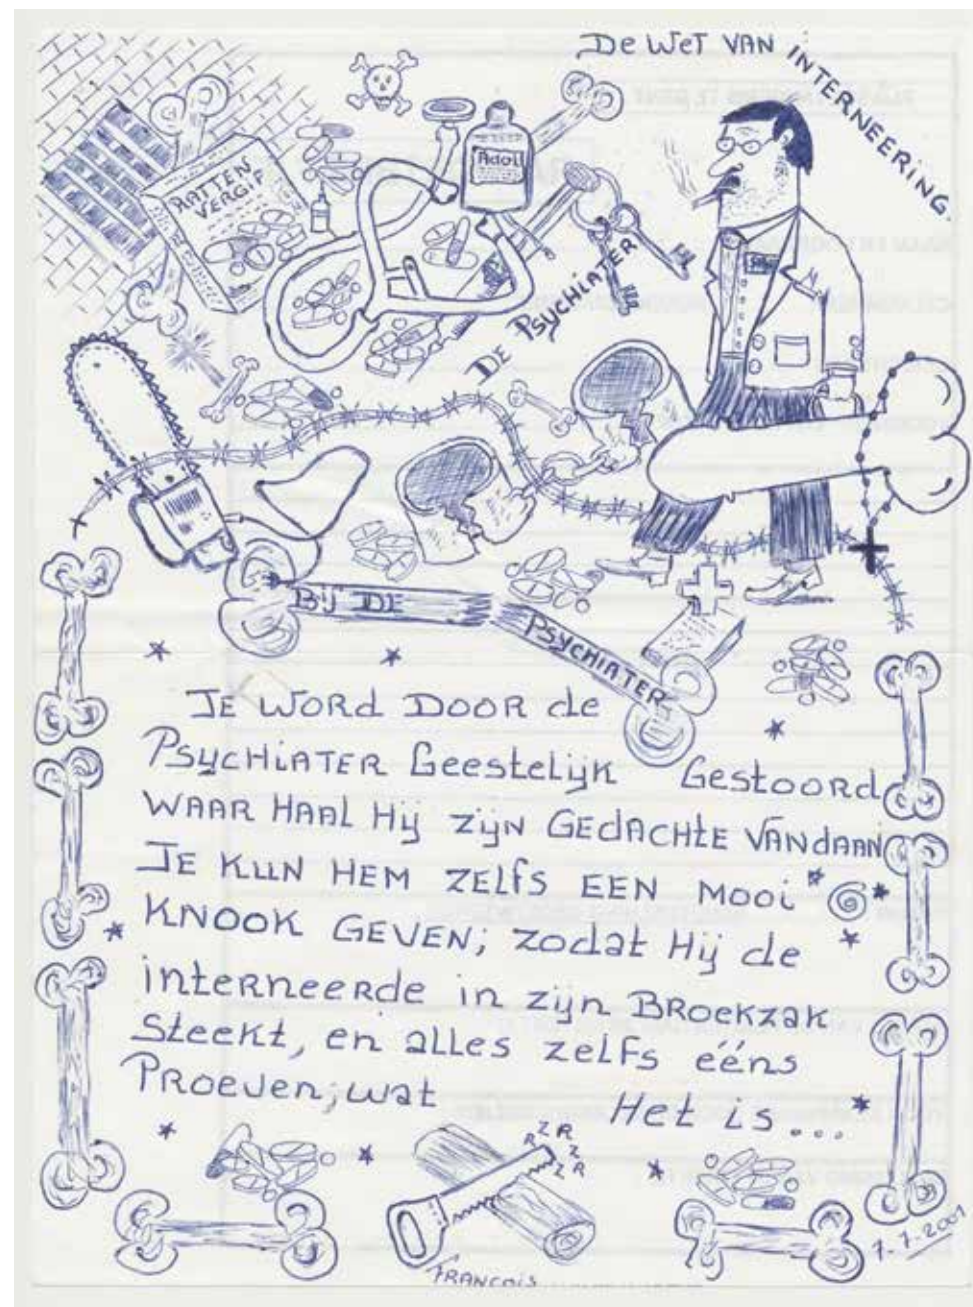 De WeT VAN INTERNEERING.
RATTEN
VERGIF
DE PSYCHIATER
BIJ DE
PSYCHIATER
JE WORD DOOR de
PSYCHIATER Geestelijk Gestoord
WAAR HAAL Hij zijn GEDACHTE VANdAAN
JE KUN HEM ZELFS EEN MOOi
KNOOK GEVEN; zodat Hij de
interneerde in zijn BROEKZAK
Steekt, en alles zelfs ééns
PROEVEN; wat Het is...
R Z R Z R Z
FRANCOIS
7.7.2001